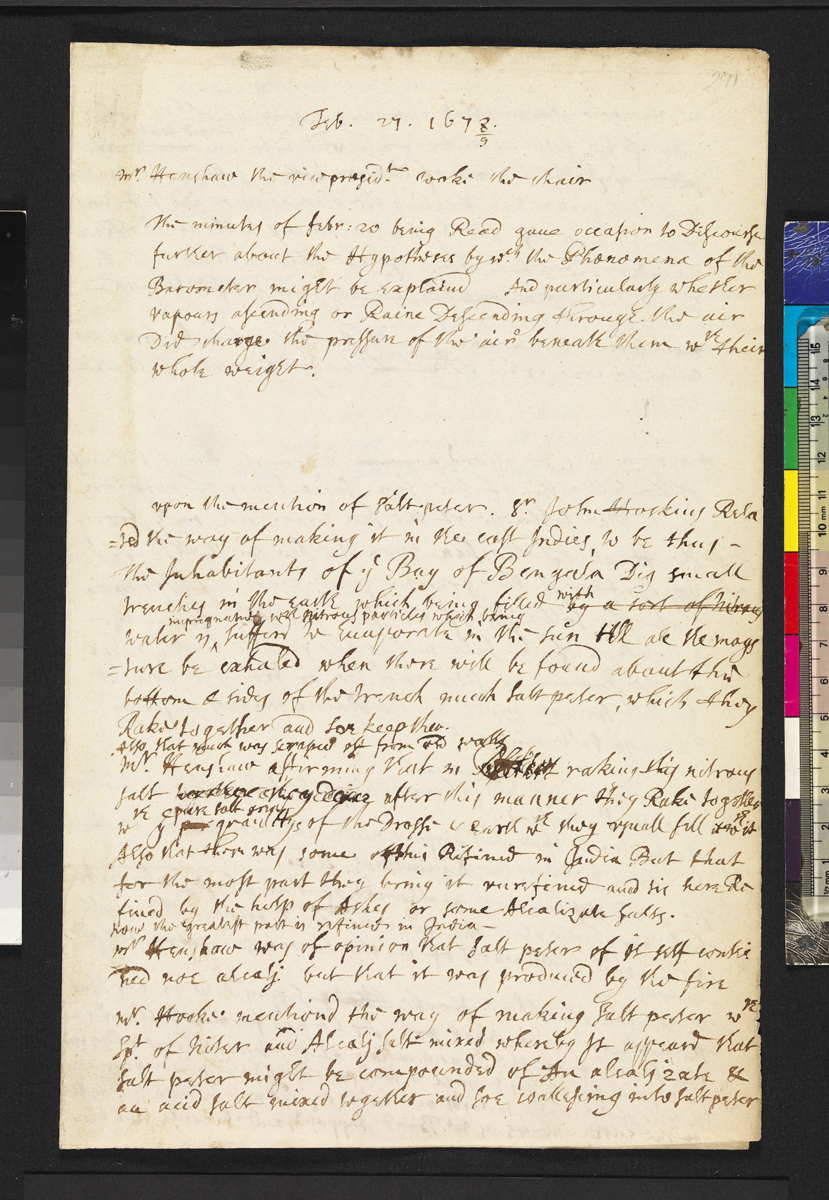 Feb. 27. 167 8/9.
mr. Henshaw the vice presidt. tooke the chair
the minutes of febr: 20 being Read gaue occasion to Discourse
further about the Hypotheses by wch. the Phænomena of the
Barometer might be explaind And particularly whether
vapours ascending or Raine Descending through the air
Did change the pressure of the air beneath them wth their
whole weight.
vpon the mention of salt peter. Sr. John Hoskins Rela
=ted the way of making it in the east Indies, to be thus -
the Inhabitants of ye Bay of Bengala Dig small
trenches in the earth which being filled by a sort of nitrous
with
impregnated wth nitrous particles which being
water is sufferd to euaporate in the sun till all the moys
=ture be exhaled when there will be found about the
bottom & sides of the trench much salt peter, which they
Rake together and soe keep then.
Also that much was scraped off from old walls
Mr. Henshaw affirming that in raking this nitrous
salt after this manner they Rake together
pure salt
wth ye quantitys of the Drosse & earth wch they vsually sell wth it
Also that there was some of this Refined in India But that
for the most part they bring it vnrefined and tis here Re
fined by the help of Ashes or some Alcalizate salts.
now the greatest part is refined in India -
mr Henshaw was of opinion that salt peter of it self contei
ned noe alcalj but that it was produced by the fire
mr. Hooke mentiond the way of making salt peter wth
Spt. of Niter and Alcalj salt mixed whereby It appeard that
salt peter might be compounded of An alcalizate &
an acid salt mixed together and soe coalescing into salt peter